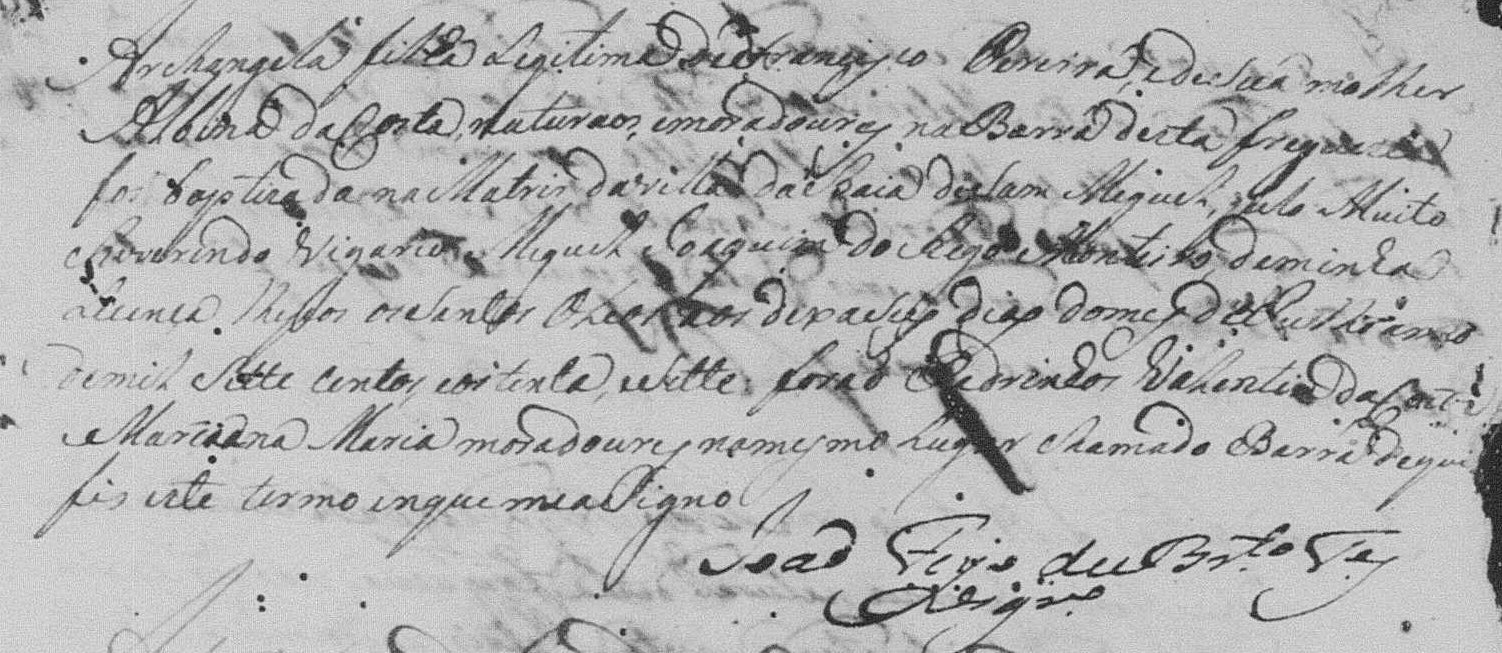 Archangela filha Legitima de Francisco Pereira, e de sua molher
Albina da Costa, naturaes, e moradoures na Barra desta freguezia
foi baptizada na Matris da villa da Baia de Sam Miguel, pelo Muito
Reverendo Vigario Miguel Joaquim do Rego Monteiro, de minha
Licença. Reços os Santos Oleos aos dezaseis dias do mes de
de mil Sette centos, e oitenta, e Sette: foraõ Padrinhos Valentim da Costa
Marianna Maria moradoures no mesmo Lugar chamado Barra de que
fis este termo em que me aSigno
Joaõ de Br.to
Vigr.o